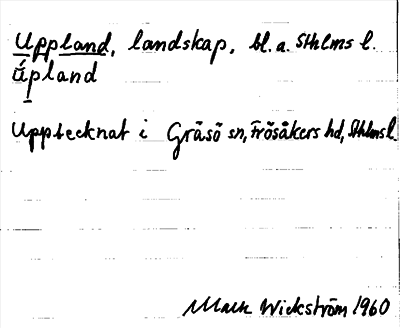 Uppland, landskap, bl.a. Sthlms l.
úpland
Upptecknat i Gräsö sn, Frösåkers hd, Sthlms l.
Wickström 1960